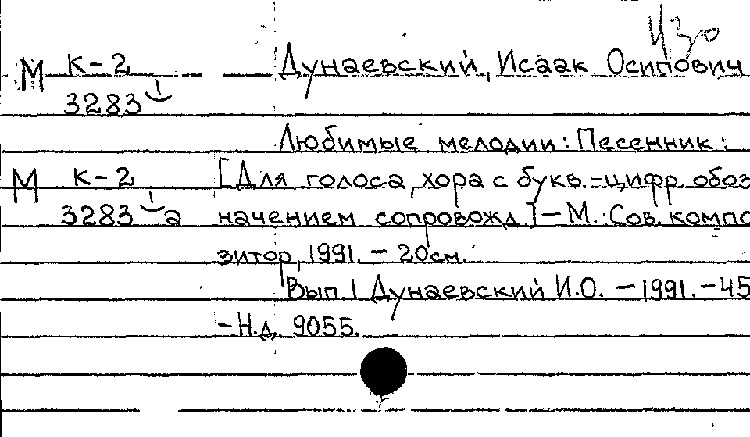 Изо
М К-2 Дунаевский, Исаак Осипович
3283
Любимые мелодии: Песенник:
М К-2 [Для голоса, хора с букв.-цифр. обоз
3283 а начением сопровожд.] - М.: Сов. компо
зитор, 1991. - 20см.
Вып. 1 Дунаевский И.О. - 1991. - 45
- Н.д. 9055.